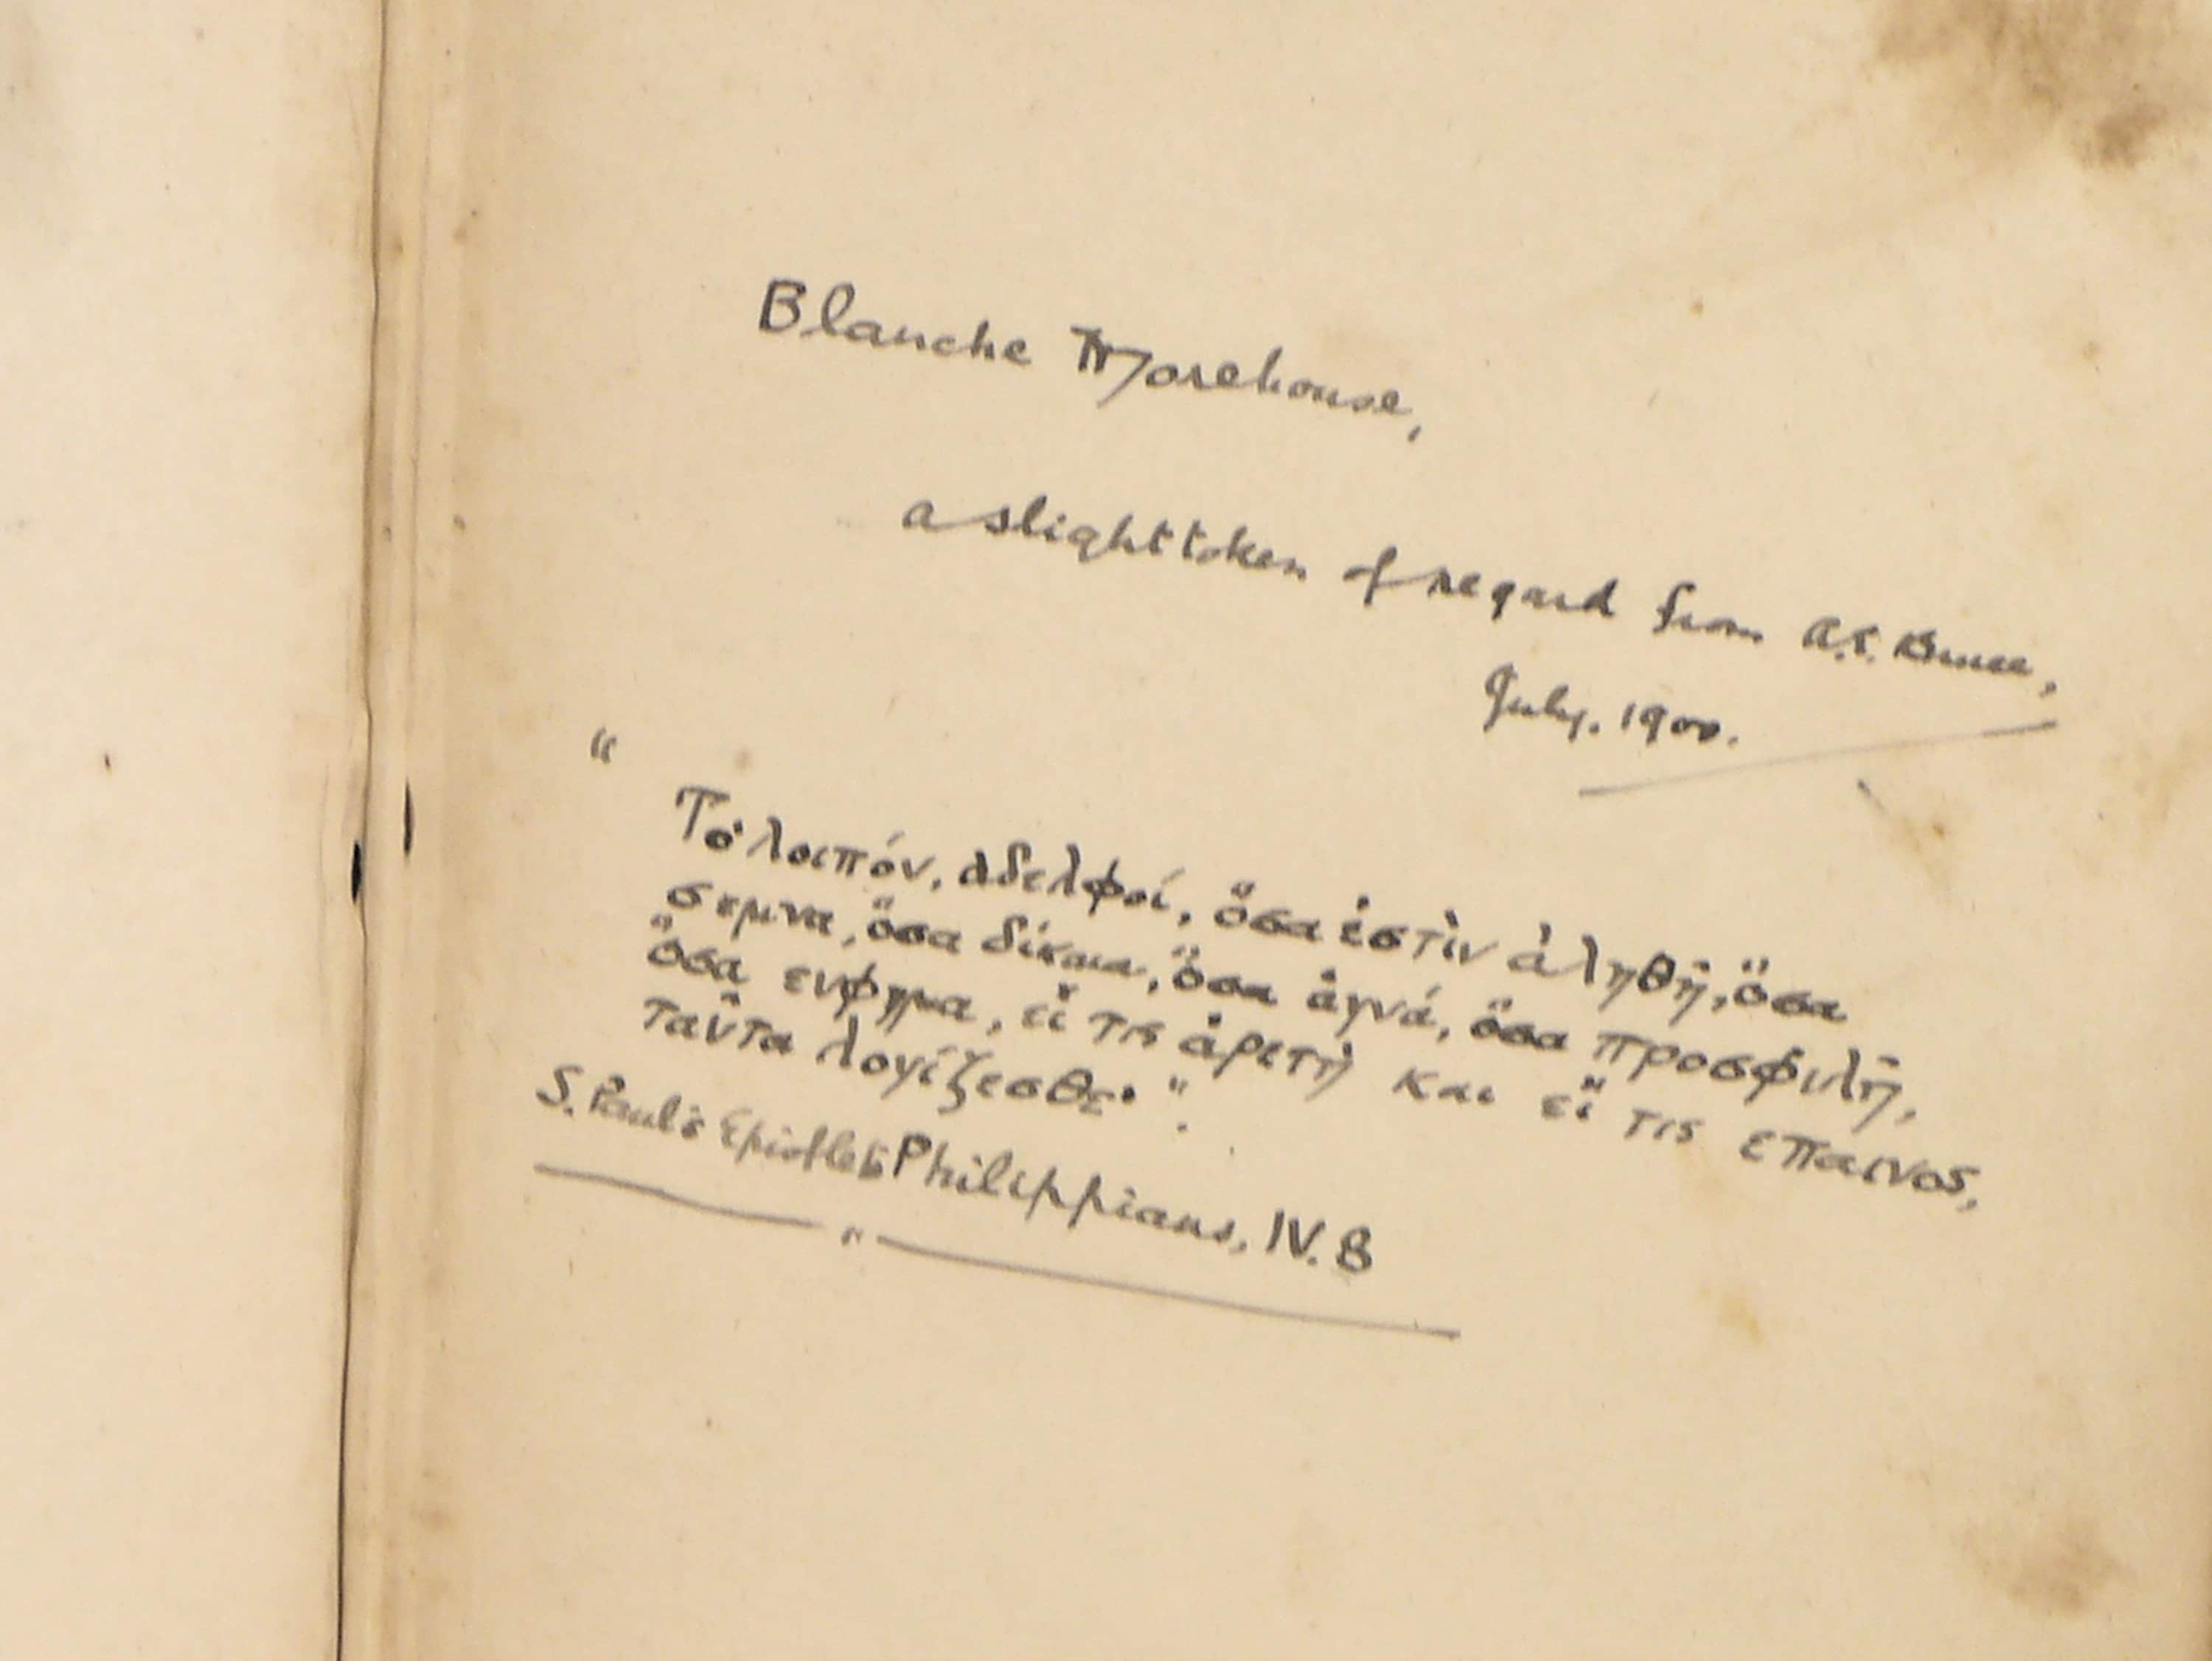 Blanche Morehouse,
a slight token of regard from A.S. Bruce,
July. 1900.
"
Τὸ λοιπόν, ἀδελφοί, ὅσα ἐστὶν ἀληθῆ, ὅσα
σεμνα, ὅσα δίκαια, ὅσα ἁγνά, ὅσα προσφιλῆ,
ὅσα ευφημα, εἴ τις ἀρετὴ και εἴ τις επαινος,
ταῦτα λογίζεσθε· ".
S. Paul's Epistle to Philippians, IV. 8